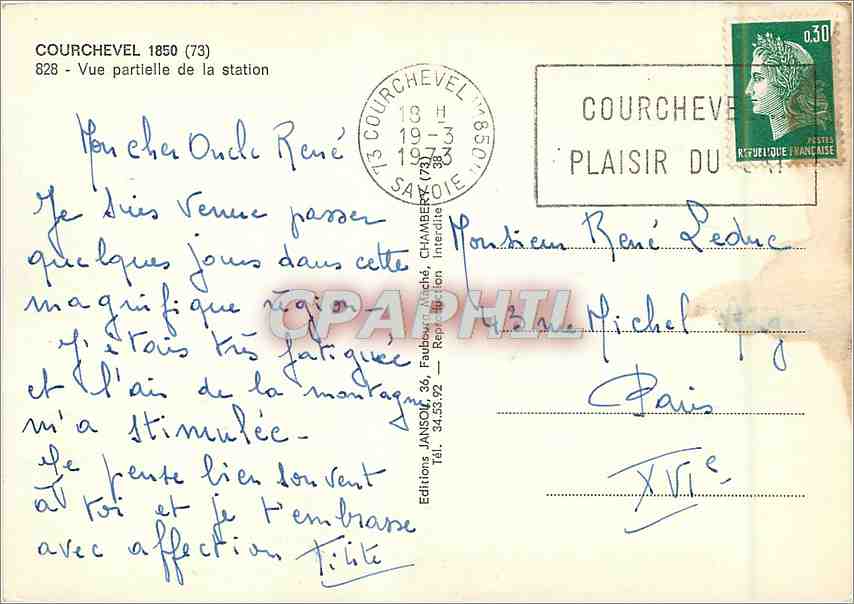 COURCHEVEL 1850 (73)
828 - Vue partielle de la station
Mon cher Oncle René
Je suis venue passer
quelques jours dans cette
magnifique région -
J'étais très fatiguée
et l'air de la montagne
m'a stimulée -
Je pense bien souvent
à toi et je t'embrasse
avec affection Titite
73 COURCHEVEL "1850"
18 H
19-3
1973
SAVOIE
COURCHEVE
PLAISIR DU
0,30
POSTES
REPUBLIQUE FRANÇAISE
Editions JANSOL, 36, Faubourg Maché, CHAMBERY (73)
Tél. 34.53.92 — Reproduction Interdite 38
CPAPHIL
Monsieur René Leduc
43 rue Michel Ang
Paris
XVIe